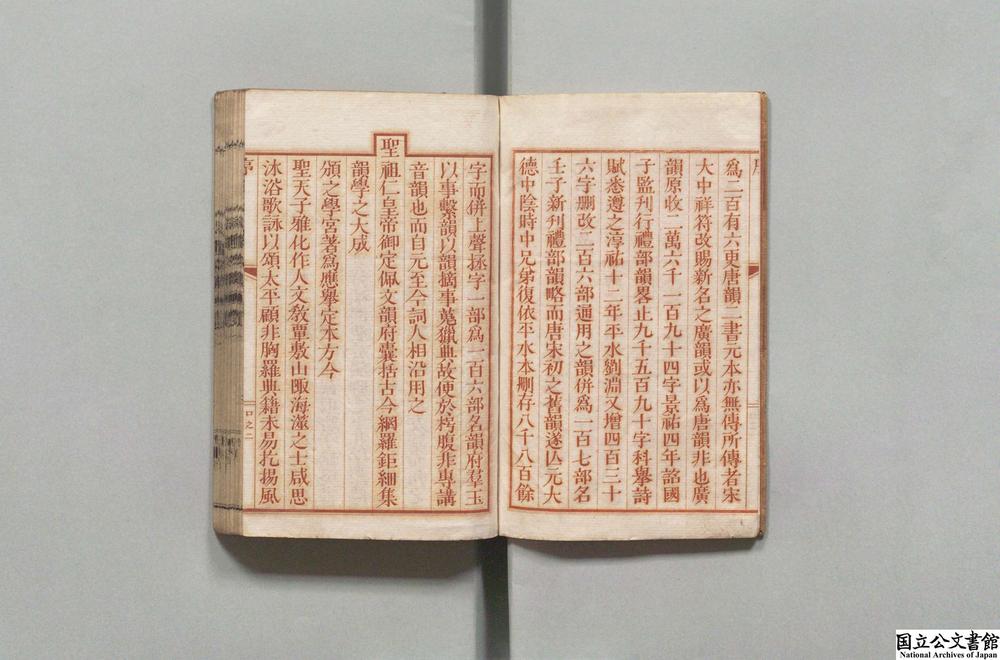 序
爲二百有六更唐韻二書元本亦無傳所傳者宋
大中祥符改賜新名之廣韻或以爲唐韻非也廣
韻原收二萬六千一百九十四字景祐四年詔國
子監刊行禮部韻畧止九千五百九十字科舉詩
賦悉遵之淳祐十二年平水劉淵又增四百三十
六字刪改二百六部通用之韻併爲一百七部名
壬子新刊禮部韻略而唐宋初之舊韻遂亾元大
德中陰時中兄弟復依平水本刪存八千八百餘
字而併上聲拯字一部爲一百六部名韻府羣玉
以事繫韻以韻摘事蒐獵典故使於枵腹非專講
音韻也而自元至今詞人相沿用之
聖祖仁皇帝御定佩文韻府囊括古今網羅鉅細集
韻學之大成
頒之學宮著爲應舉定本方今
聖天子雅化作人文敎覃敷山陬海澨之士咸思
沐浴歌詠以頌太平顧非胸羅典籍未易扢揚風
序
口之二
国立公文書館
National Archives of Japan